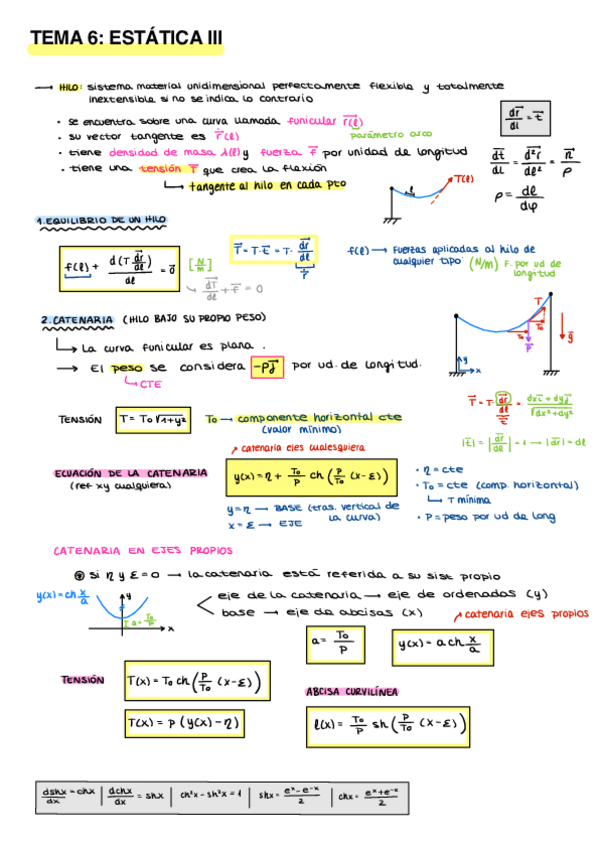 TEMA 6: ESTÁTICA III
→ HILO: sistema material unidimensional perfectamente flexible y totalmente
inextensible si no se indica lo contrario
• se encuentra sobre una curva llamada funicular r⃗(l)
parámetro arco
• su vector tangente es ṙ⃗(l)
• tiene densidad de masa λ(l) y fuerza f⃗ por unidad de longitud
• tiene una tensión T⃗ que crea la flexión
↳ tangente al hilo en cada pto
dr⃗/dl = t⃗
dt⃗/dl = d²r⃗/dl² = n⃗/ρ
ρ = dl/dφ
l
T(l)
1. EQUILIBRIO DE UN HILO
f(l) + d(T·dr⃗/dl)/dl = 0⃗ [N/m]
→ dT⃗/dl + f⃗ = 0
T⃗ = T·t⃗ = T·dr⃗/dl
ṙ
f(l) → Fuerzas aplicadas al hilo de
cualquier tipo (N/m) F. por ud de
longitud
2. CATENARIA (HILO BAJO SU PROPIO PESO)
↳ La curva funicular es plana.
→ El peso se considera -Pj⃗ por ud. de longitud.
↳ CTE
T
T₀
P
g⃗
y
x
TENSIÓN T = T₀√1+y² T₀ → componente horizontal cte
(valor mínimo)
T⃗ = T·dr⃗/dl = dxi⃗ + dyj⃗/√dx²+dy²
t⃗
|t⃗| = |dr⃗/dl| = 1 → |dr⃗| = dl
catenaria ejes cualesquiera
ECUACIÓN DE LA CATENARIA
(ref xy cualquiera)
y(x) = η + T₀/P ch(P/T₀ (x-ε))
y = η → BASE (tras. vertical de
la curva)
x = ε → EJE
• η = cte
• T₀ = cte (comp. horizontal)
↳ T mínima
• P = peso por ud de long
CATENARIA EN EJES PROPIOS
⊛ si η y ε = 0 → la catenaria está referida a su sist propio
y(x) = ch x/a
y
a = T₀/P
x
eje de la catenaria → eje de ordenadas (y)
base → eje de abcisas (x)
catenaria ejes propios
a = T₀/P
y(x) = a ch x/a
TENSIÓN
T(x) = T₀ ch(P/T₀ (x-ε))
T(x) = P (y(x)-η)
ABCISA CURVILÍNEA
l(x) = T₀/P sh(P/T₀ (x-ε))
dshx/dx = chx | dchx/dx = shx | ch²x - sh²x = 1 | shx = eˣ-e⁻ˣ/2 | chx = eˣ+e⁻ˣ/2